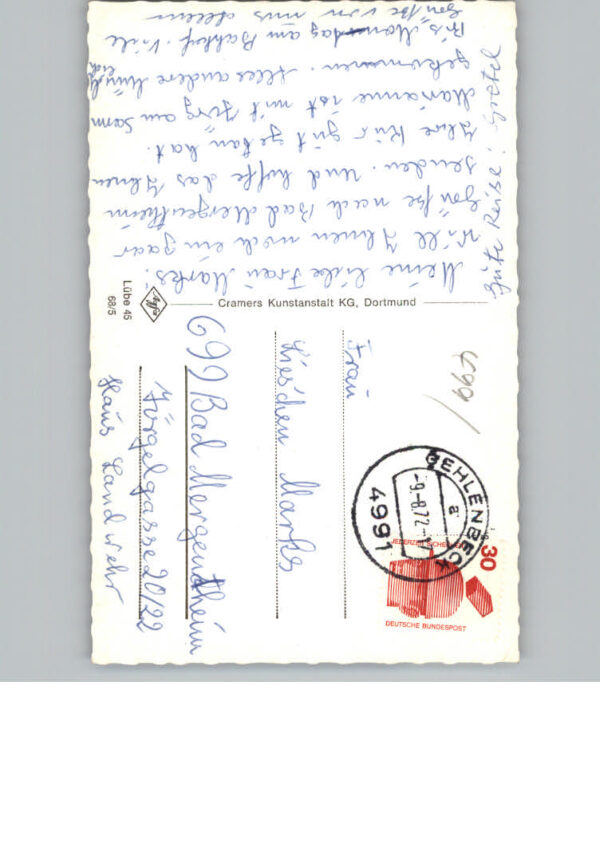 Meine liebe Frau Marks!
Will Ihnen noch ein paar
Grüße nach Bad Mergentheim
senden. Und hoffe das Ihnen
Ihre Kur gut getan hat.
Marianne ist mit Jörg am
gekommen. Alles andere mündl.
Bis Montag am Bahnhof. Viele
Grüße von uns allen
Gute Reise!
Cramers Kunstanstalt KG, Dortmund
Agfa
Lübe 45
68/5
499/
GEHLENBECK
4991
-9.-8.72-17
a
30
JEDERZEIT SICHERHEIT
DEUTSCHE BUNDESPOST
Frau
Lieschen Marks
699 Bad Mergentheim
Törgelgasse 20/22
Haus Landwehr